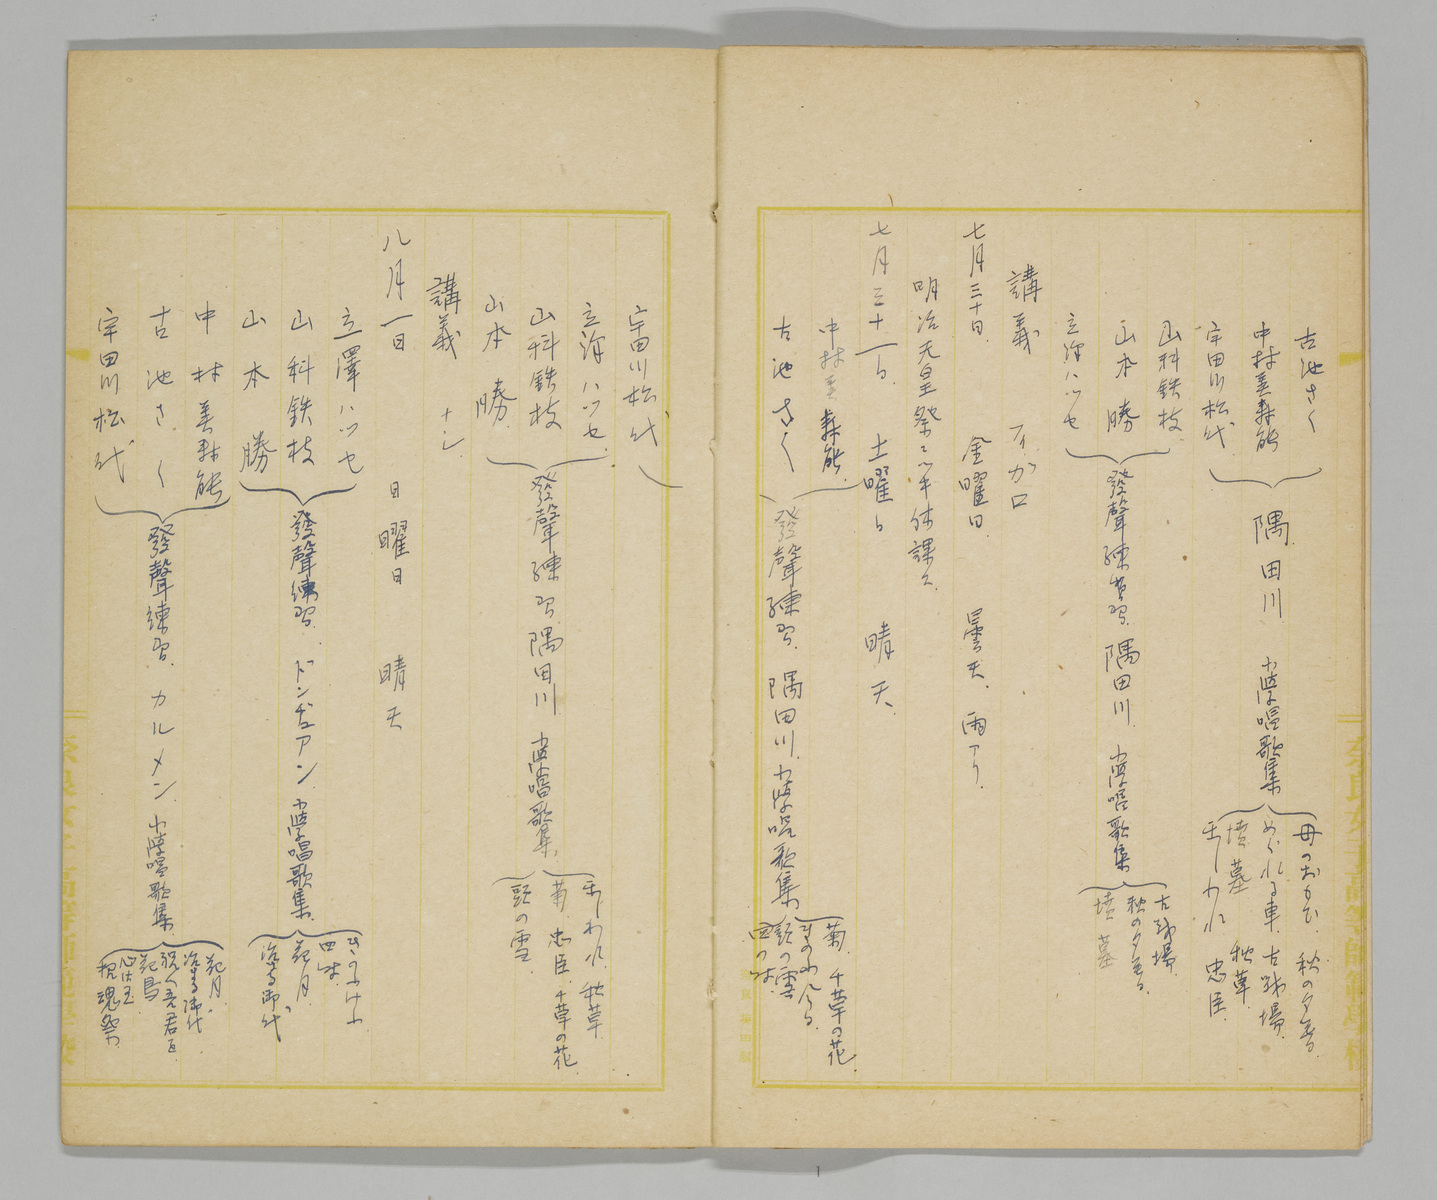 古池さく
中林美壽能
宇田川松代
隅田川 小學唱歌集
母のおもひ 秋の夕暮
めぐれる車 古戰場
墳墓 秋草
玉しわれ 忠臣
山科鉄枝
山本 勝
立澤ハツセ
發聲練習 隅田川 小學唱歌集
古戰場
秋の夕暮
墳墓
講義 フィガロ
七月三十日 金曜日 曇天 雨アリ
明治天皇祭ニツキ休課ス
七月三十一日 土曜日 晴天
中林美壽能
古池さく
發聲練習 隅田川 小學唱歌集
菊 千草の花
頭の雪
四の時
宇田川松代
立澤ハツセ
山科鉄枝
山本 勝
發聲練習 隅田川 小學唱歌集
玉しわれ 秋草
菊 忠臣 千草の花
頭の雪
講義 ナシ
八月一日 日曜日 晴天
立澤ハツセ
山科鉄枝
山本 勝
發聲練習 ドンヂュアン 小學唱歌集
きのふけふ
四時
花月
治まる御代
中林美壽能
古池さく
宇田川松代
發聲練習 カルメン 小學唱歌集
花月
治まる御代
祝へ吾君を
花鳥
心は玉
招魂祭